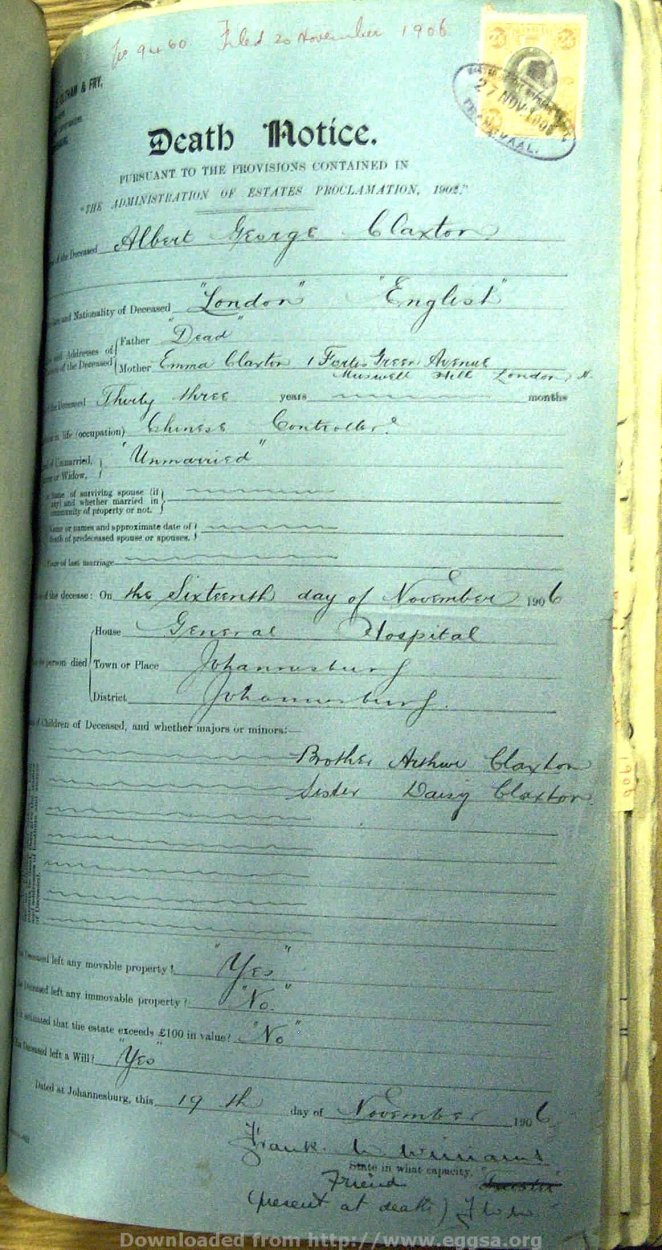 9460 Filed 20 November 1906
& FRY,
27 NOV 1906
TRANSVAAL.
Death Notice.
PURSUANT TO THE PROVISIONS CONTAINED IN
"THE ADMINISTRATION OF ESTATES PROCLAMATION, 1902."
of the Deceased Albert George Claxton
and Nationality of Deceased "London" "English"
and Addresses of of the Deceased Father "Dead"
Mother Emma Claxton 1 Fortis Green Avenue
Muswell Hill London N.
the Deceased Thirty three years months
in life (occupation) Chinese Controller
Unmarried, or Widow, "Unmarried"
name of surviving spouse (if any) and whether married in community of property or not.
Name or names and approximate date of death of predeceased spouse or spouses.
Place of last marriage
of the decease: On the Sixteenth day of November 1906
House General Hospital
person died Town or Place Johannesburg
District Johannesburg.
of Children of Deceased, and whether majors or minors:—
Brother Arthur Claxton
Sister Daisy Claxton
Deceased left any movable property? "Yes"
Deceased left any immovable property? "No."
estimated that the estate exceeds £100 in value? "No"
Deceased left a Will? "Yes
Dated at Johannesburg, this 19th day of November 1906
Frank Williams
State in what capacity.
Friend
(present at death)
Downloaded from http://www.eggsa.org